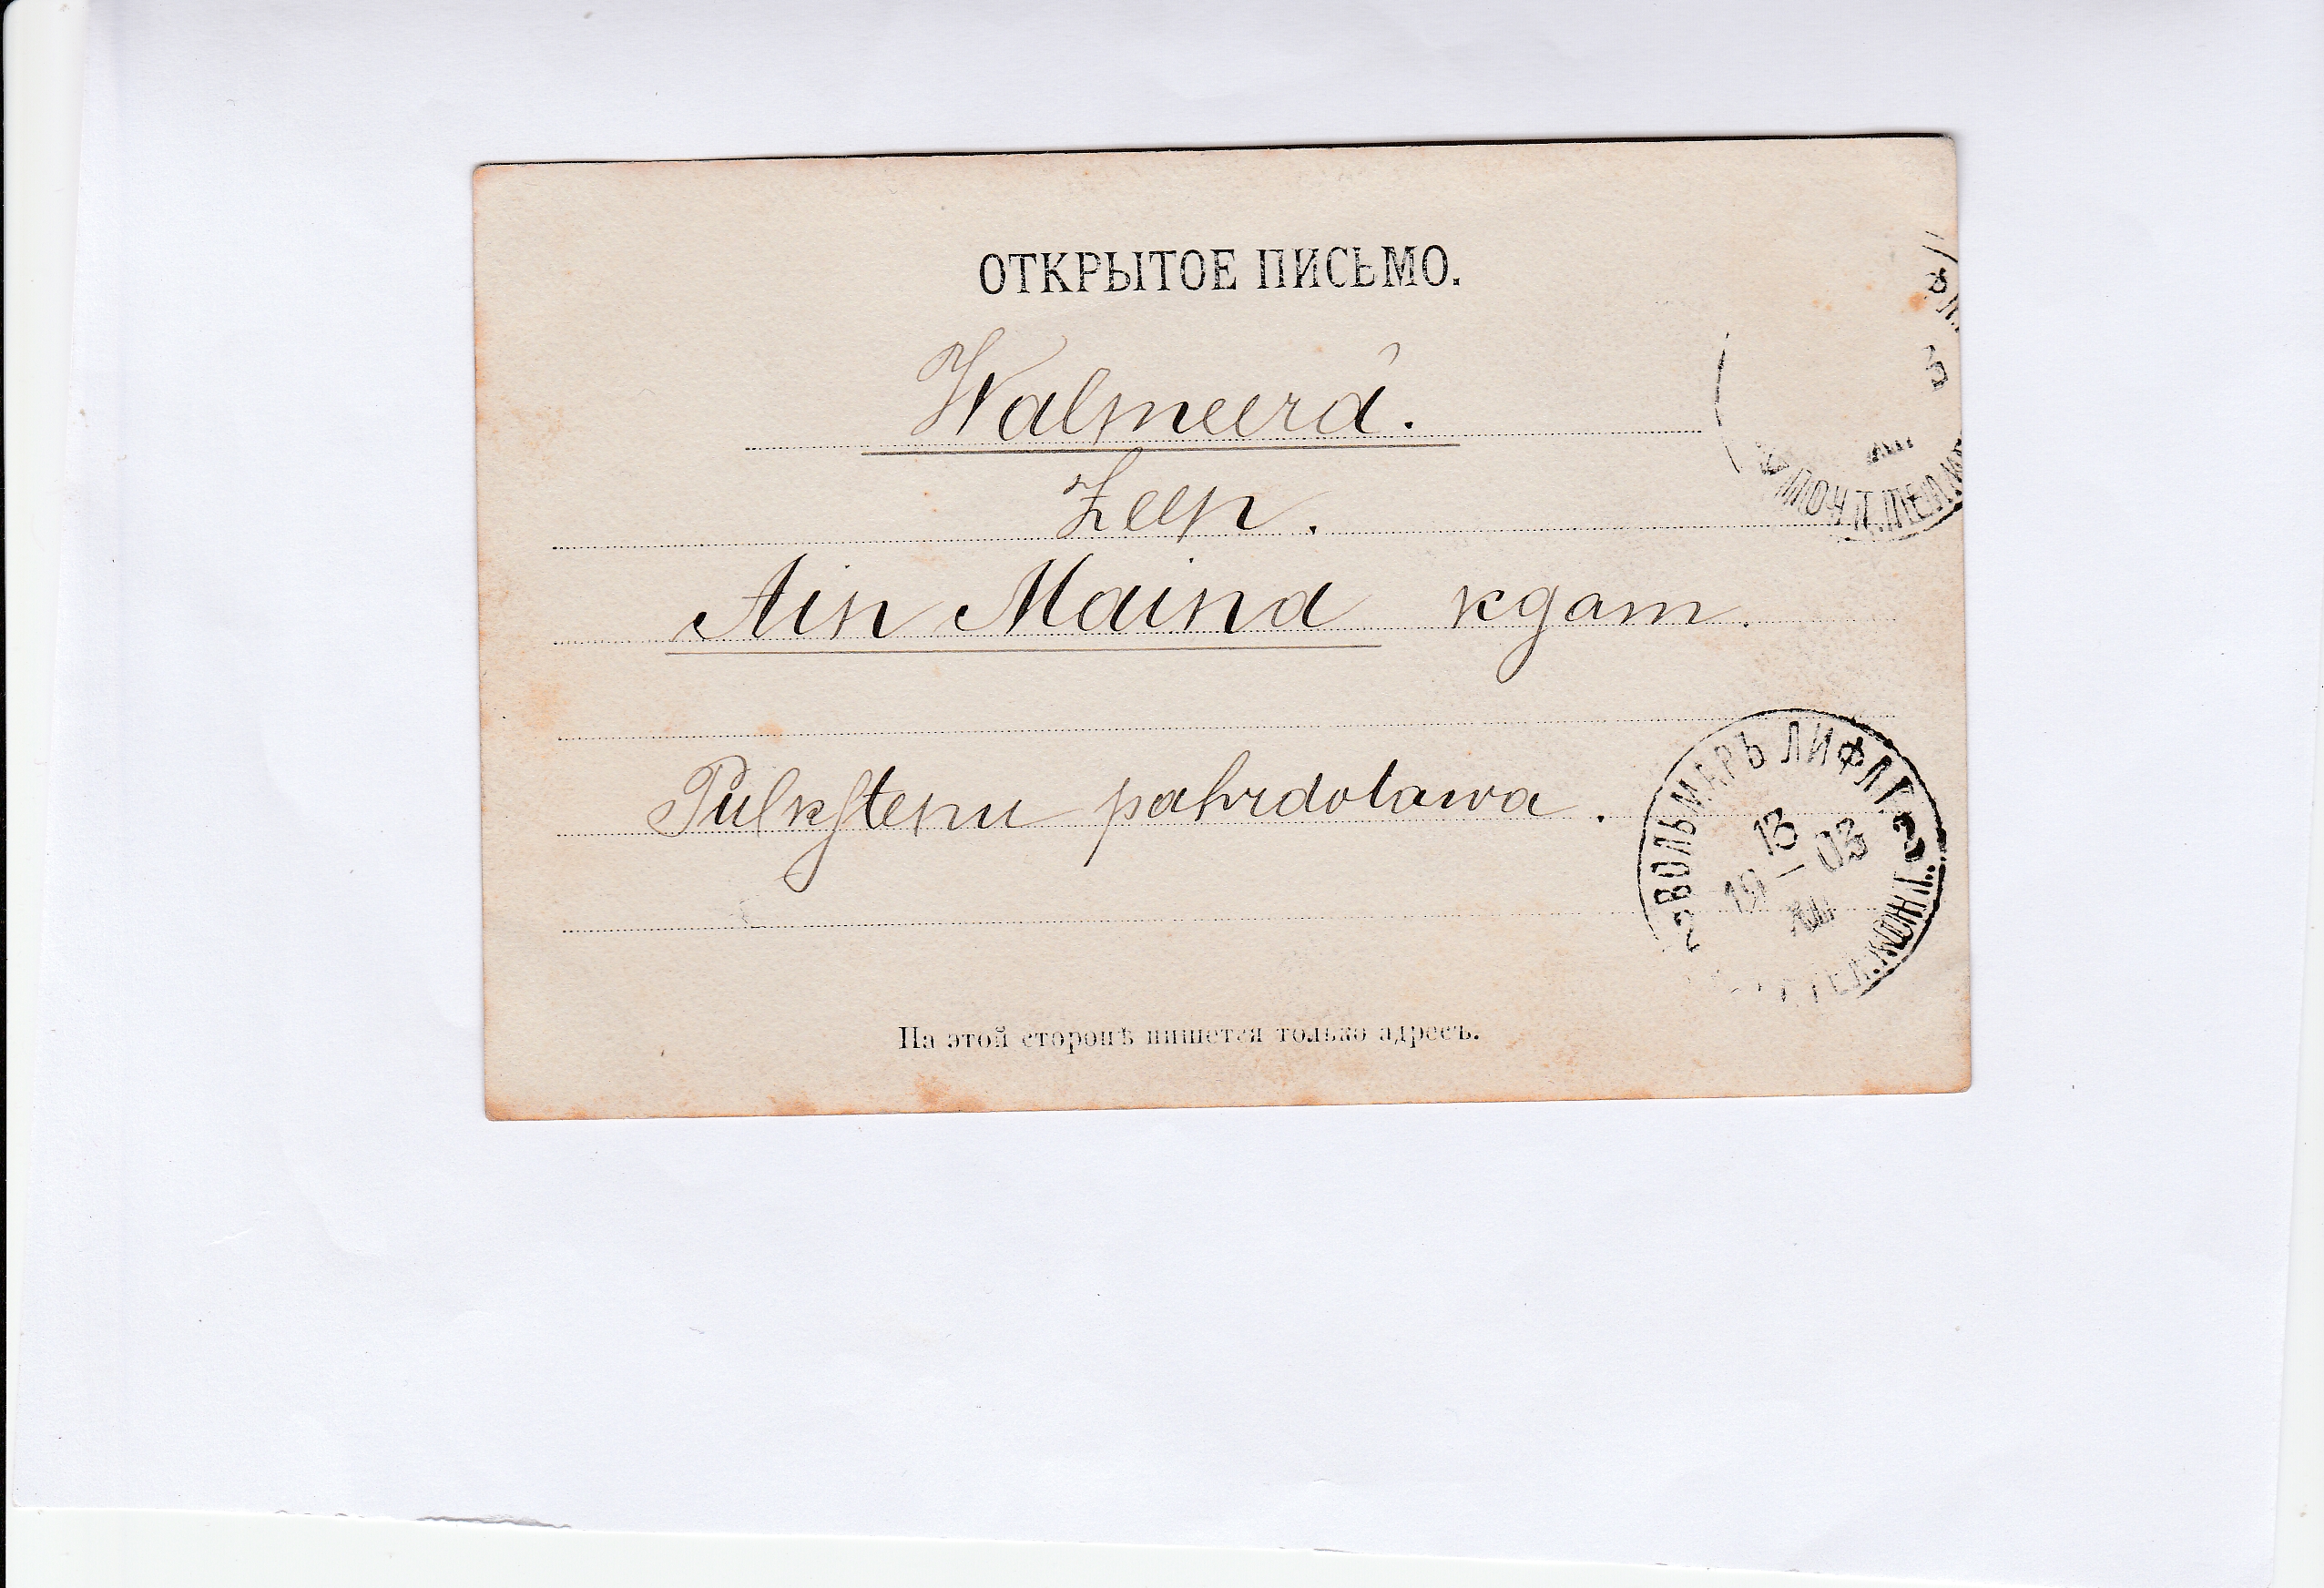 ОТКРЫТОЕ ПИСЬМО.
Walmeerâ.
Zeen.
Ain Maina kgam.
Pulkstenu pahrdotawa.
ВОЛЬМАРЪ ЛИФЛ
13
19 – 03
2
ПОЧТ.ТЕЛ.
3
На этой сторонѣ пишется только адресъ.